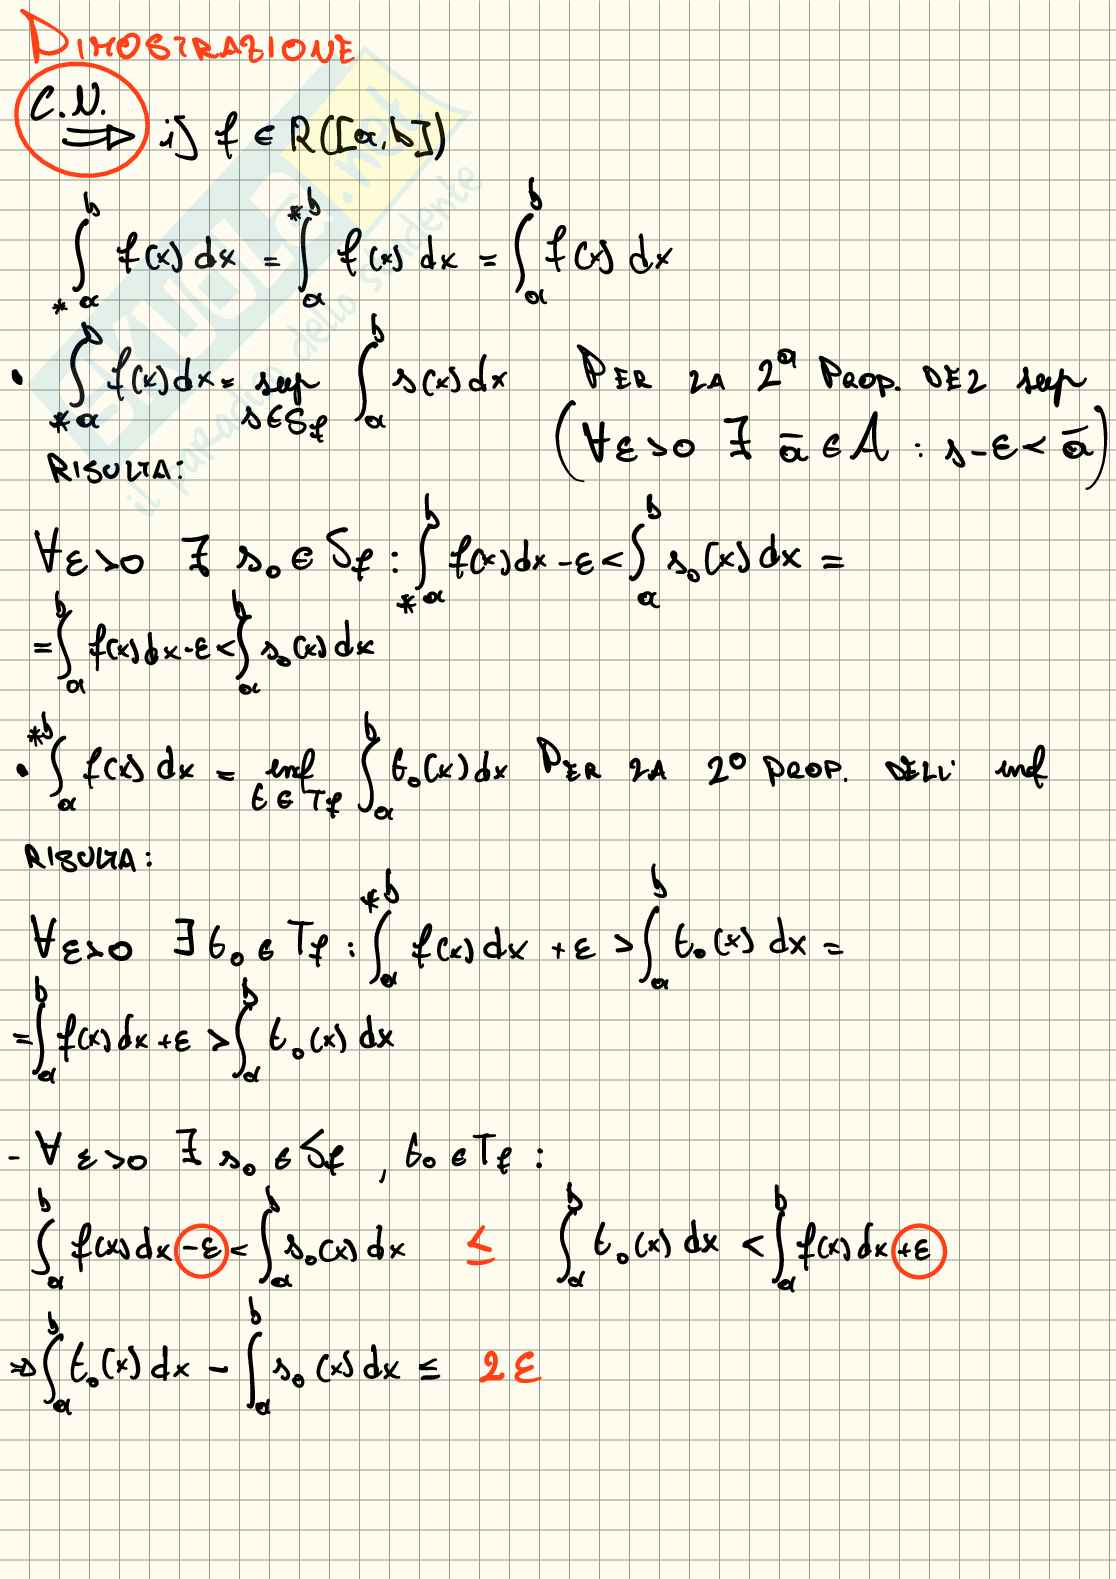 DIMOSTRAZIONE
C.N. ⟹ i) f ∈ R([a,b])
∫_{*a}^{b} f(x) dx = ∫_{a}^{*b} f(x) dx = ∫_{a}^{b} f(x) dx
• ∫_{*a}^{b} f(x) dx = sup_{s∈S_f} ∫_{a}^{b} s(x) dx PER LA 2ª PROP. DEL sup
(∀ε>0 ∃ ā ∈ A : s-ε < ā)
RISULTA:
∀ε>0 ∃ s₀ ∈ S_f : ∫_{*a}^{b} f(x) dx - ε < ∫_{a}^{b} s₀(x) dx =
= ∫_{a}^{b} f(x) dx - ε < ∫_{a}^{b} s₀(x) dx
• ∫_{a}^{*b} f(x) dx = inf_{t∈T_f} ∫_{a}^{b} t₀(x) dx PER LA 2° PROP. DELL' inf
RISULTA:
∀ε>0 ∃ t₀ ∈ T_f : ∫_{a}^{*b} f(x) dx + ε > ∫_{a}^{b} t₀(x) dx =
= ∫_{a}^{b} f(x) dx + ε > ∫_{a}^{b} t₀(x) dx
- ∀ε>0 ∃ s₀ ∈ S_f , t₀ ∈ T_f :
∫_{a}^{b} f(x) dx - ε < ∫_{a}^{b} s₀(x) dx ≤ ∫_{a}^{b} t₀(x) dx < ∫_{a}^{b} f(x) dx + ε
⇒ ∫_{a}^{b} t₀(x) dx - ∫_{a}^{b} s₀(x) dx ≤ 2ε
SKUOLA.net
il paradiso dello studente